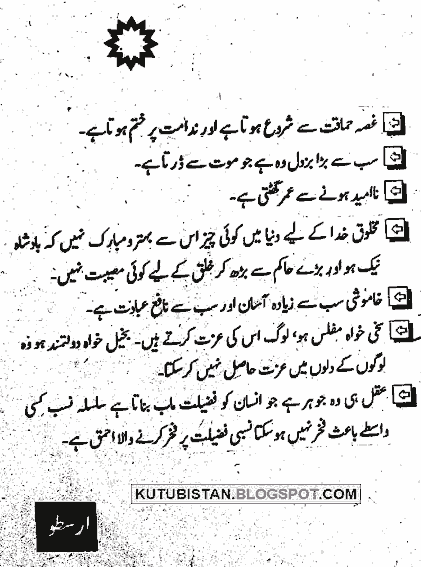 غصہ حماقت سے شروع ہوتا ہے اور ندامت پر ختم ہوتا ہے۔
سب سے بڑا بزدل وہ ہے جو موت سے ڈرتا ہے۔
ناامید ہونے سے عمر گھٹتی ہے۔
مخلوق خدا کے لیے دنیا میں کوئی چیز اس سے بہتر و مبارک نہیں کہ بادشاہ
نیک ہو اور بڑے حاکم سے بڑھ کر خلق کے لیے کوئی مصیبت نہیں۔
خاموشی سب سے زیادہ آسان اور سب سے نافع عبادت ہے۔
سخی خواہ مفلس ہو، لوگ اس کی عزت کرتے ہیں۔ بخیل خواہ دولتمند ہو وہ
لوگوں کے دلوں میں عزت حاصل نہیں کر سکتا۔
عقل ہی وہ جوہر ہے جو انسان کو فضیلت ماب بناتا ہے سلسلہ نسب کسی
واسطے باعث فخر نہیں ہو سکتا نسبی فضیلت پر فخر کرنے والا احمق ہے۔
KUTUBISTAN.BLOGSPOT.COM
ارسطو